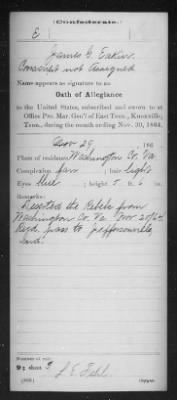 (Confederate.)
E
James G. Eakin
Conscript not Assigned
Name appears as signature to an
Oath of Allegiance
to the United States, subscribed and sworn to at
Office Pro. Mar. Gen'l of East Tenn., Knoxville,
Tenn., during the month ending Nov. 30, 1864.
Nov 29, 186
Place of residence Washington Co. Va
Complexion fair ; hair light
Eyes blue ; height 5 ft. 6 in.
Remarks:
Deserted the Rebels from
Washington Co. Va Nov 20/64
Recd. pass to Jeffersonville
Ind.
Number of roll:
9; sheet 5
Copyist.